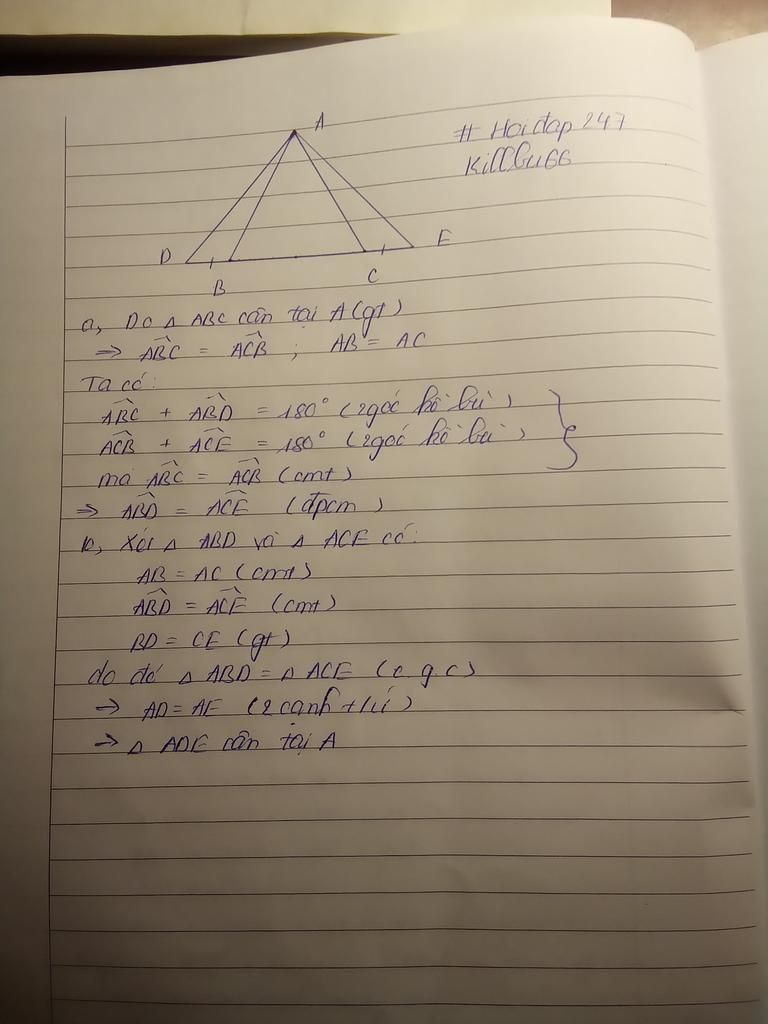 A
# Hoidap 247
Killbu66
D
B
C
E
a, Do Δ ABC cân tại A (gt)
⇒ ABC = ACB ; AB = AC
Ta có:
ABC + ABD = 180° (2 góc kề bù)
ACB + ACE = 180° (2 góc kề bù)
mà ABC = ACB (cmt)
⇒ ABD = ACE (đpcm)
b, Xét Δ ABD và Δ ACE có:
AB = AC (cmt)
ABD = ACE (cmt)
BD = CE (gt)
do đó Δ ABD = Δ ACE (c.g.c)
→ AD = AE (2 cạnh t/ứ)
→ Δ ADE cân tại A